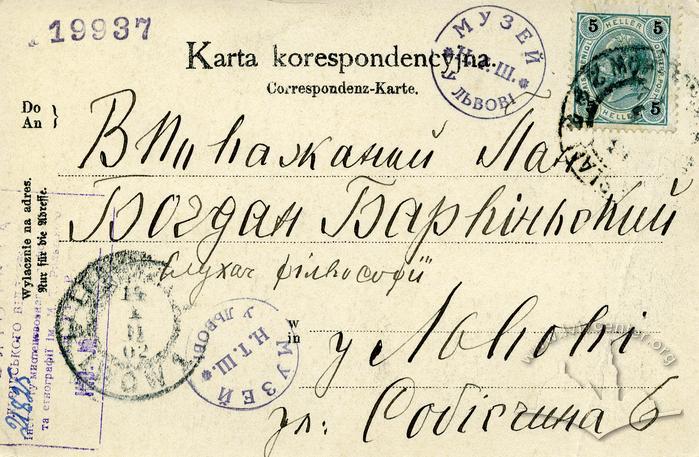 19937
Karta korespondencyjna.
Correspondenz-Karte.
МУЗЕЙ
Н.Т.Ш.
У ЛЬВОВІ
5 HELLER 5
5 HELLER 5
Do
An
ВПоважаний Пан
Богдан Барвіньский
слухач фільософії
w
in
у Львові
ул: Собісчина 6
Wyłacznie na adres.
Nur für die Adresse.
14
02
МУЗЕЙ
Н.Т.Ш.
У ЛЬВОВІ
та етнографії ім
22825